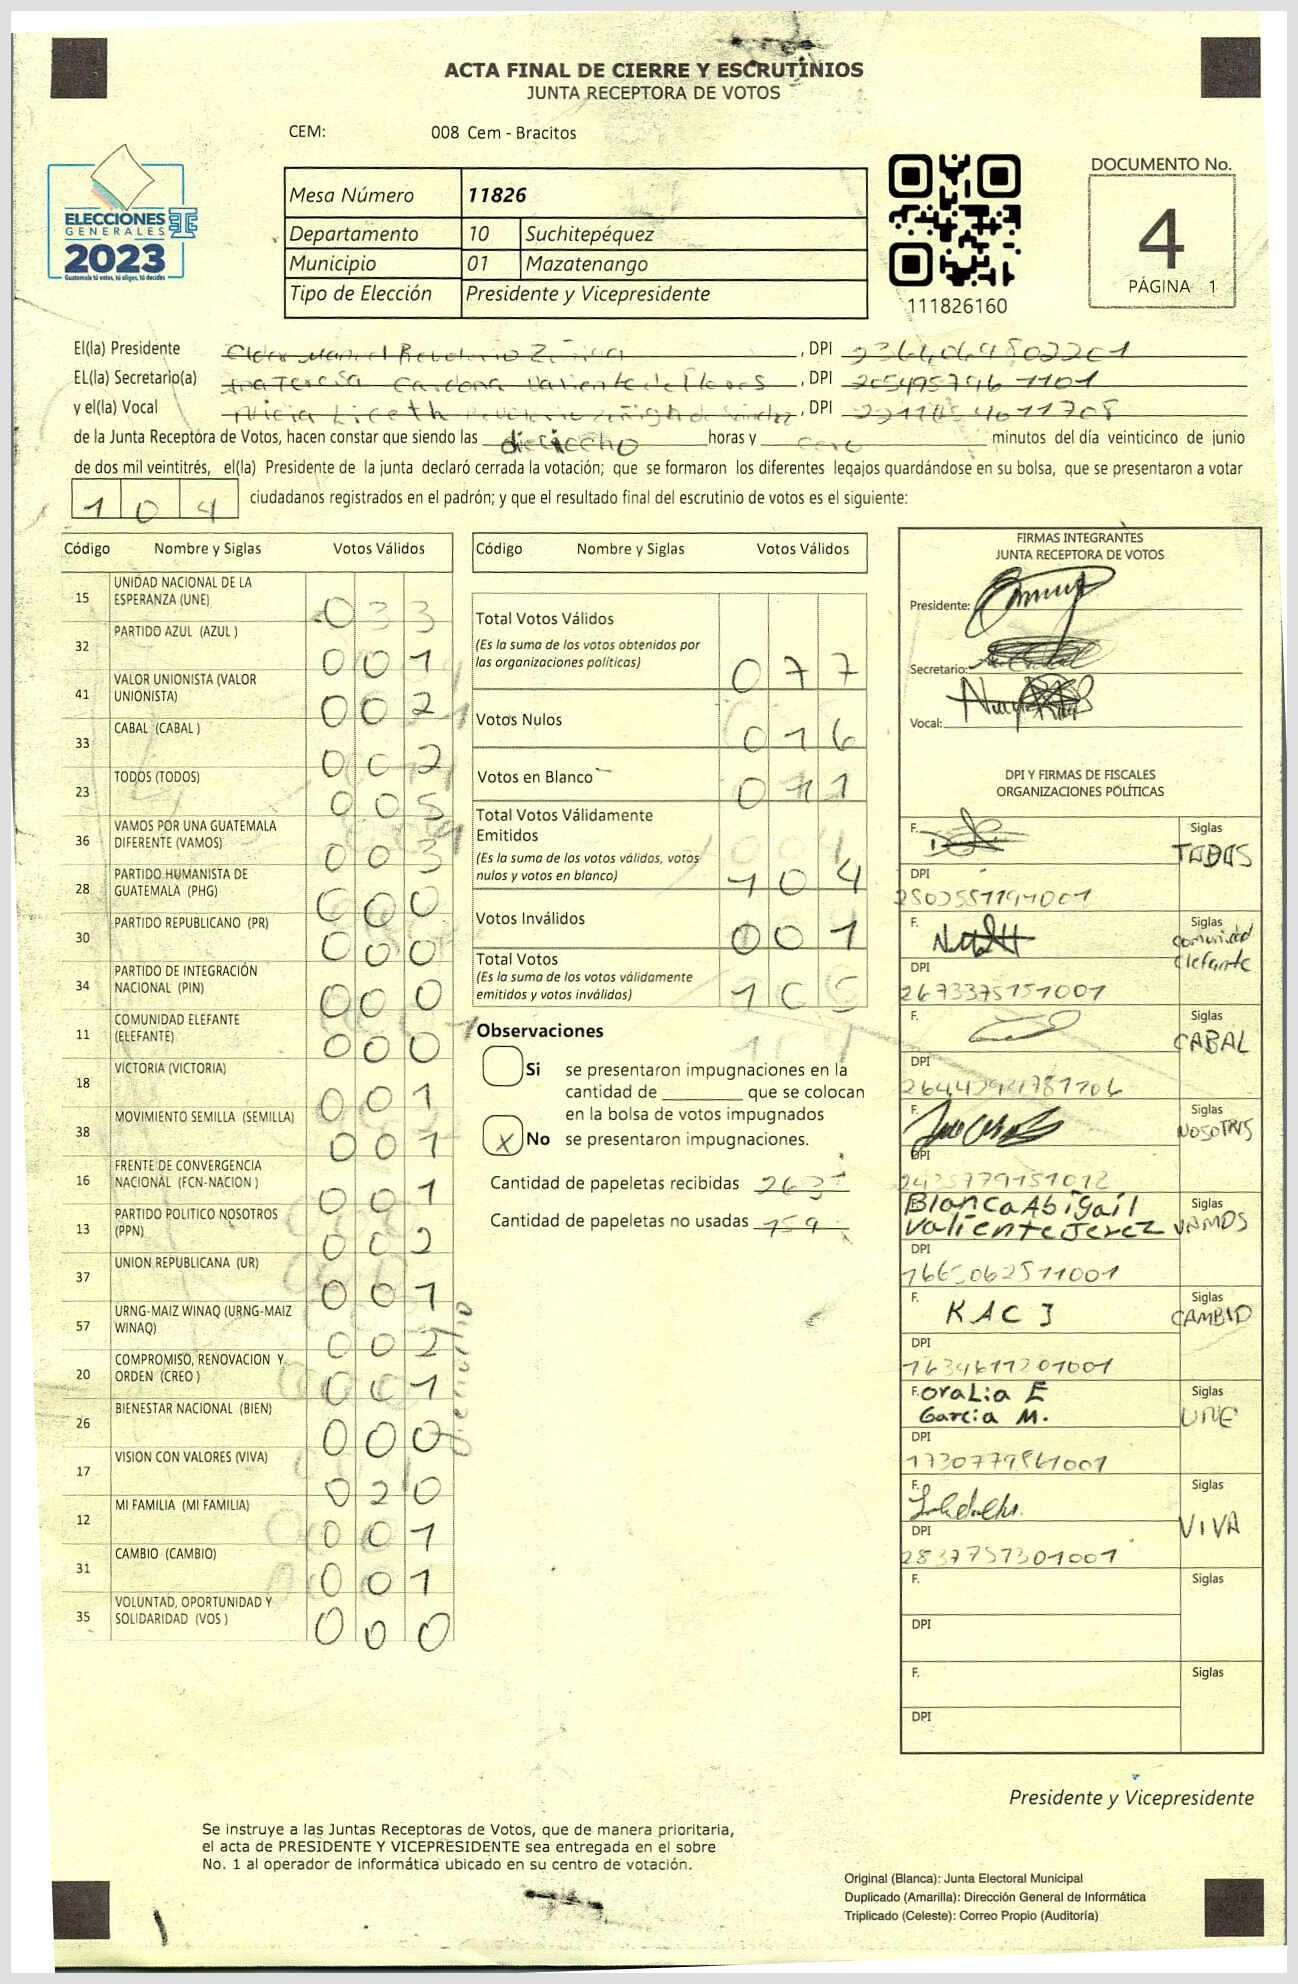 ACTA FINAL DE CIERRE Y ESCRUTINIOS
JUNTA RECEPTORA DE VOTOS
CEM: 008 Cem - Bracitos
ELECCIONES
GENERALES
2023
Guatemala tú votas, tú eliges, tú decides
Mesa Número 11826
Departamento 10 Suchitepéquez
Municipio 01 Mazatenango
Tipo de Elección Presidente y Vicepresidente
111826160
DOCUMENTO No.
4
PÁGINA 1
El(la) Presidente , DPI
EL(la) Secretario(a) Ana Teresa Cardona , DPI
y el(la) Vocal Liceth , DPI
de la Junta Receptora de Votos, hacen constar que siendo las dieciocho horas y cero minutos del día veinticinco de junio
de dos mil veintitrés, el(la) Presidente de la junta declaró cerrada la votación; que se formaron los diferentes legajos guardándose en su bolsa, que se presentaron a votar
104 ciudadanos registrados en el padrón; y que el resultado final del escrutinio de votos es el siguiente:
Código Nombre y Siglas Votos Válidos
15 UNIDAD NACIONAL DE LA ESPERANZA (UNE) 033
32 PARTIDO AZUL (AZUL ) 001
41 VALOR UNIONISTA (VALOR UNIONISTA) 002
33 CABAL (CABAL ) 002
23 TODOS (TODOS) 005
36 VAMOS POR UNA GUATEMALA DIFERENTE (VAMOS) 003
28 PARTIDO HUMANISTA DE GUATEMALA (PHG) 000
30 PARTIDO REPUBLICANO (PR) 000
34 PARTIDO DE INTEGRACIÓN NACIONAL (PIN) 000
11 COMUNIDAD ELEFANTE (ELEFANTE) 000
18 VICTORIA (VICTORIA) 001
38 MOVIMIENTO SEMILLA (SEMILLA) 001
16 FRENTE DE CONVERGENCIA NACIONAL (FCN-NACION ) 001
13 PARTIDO POLITICO NOSOTROS (PPN) 002
37 UNION REPUBLICANA (UR) 001
57 URNG-MAIZ WINAQ (URNG-MAIZ WINAQ) 002
20 COMPROMISO, RENOVACION Y ORDEN (CREO ) 001
26 BIENESTAR NACIONAL (BIEN) 000
17 VISION CON VALORES (VIVA) 020
12 MI FAMILIA (MI FAMILIA) 001
31 CAMBIO (CAMBIO) 001
35 VOLUNTAD, OPORTUNIDAD Y SOLIDARIDAD (VOS ) 000
Código Nombre y Siglas Votos Válidos
Total Votos Válidos 077
(Es la suma de los votos obtenidos por
las organizaciones políticas)
Votos Nulos 016
Votos en Blanco 011
Total Votos Válidamente
Emitidos 104
(Es la suma de los votos válidos, votos
nulos y votos en blanco)
Votos Inválidos 001
Total Votos 105
(Es la suma de los votos válidamente
emitidos y votos inválidos)
Observaciones
Si se presentaron impugnaciones en la
cantidad de ________ que se colocan
en la bolsa de votos impugnados
X No se presentaron impugnaciones.
Cantidad de papeletas recibidas
Cantidad de papeletas no usadas 159
FIRMAS INTEGRANTES
JUNTA RECEPTORA DE VOTOS
Presidente:
Secretario:
Vocal:
DPI Y FIRMAS DE FISCALES
ORGANIZACIONES POLÍTICAS
F. Siglas TODOS
DPI
F. Siglas Comunidad Elefante
DPI 2673375151001
F. Siglas CABAL
DPI
F. Siglas NOSOTROS
DPI
F. Blanca Abigaíl
Valiente Jerez
Siglas VAMOS
DPI 1665062511001
F. KACJ Siglas CAMBIO
DPI 1634611201001
F. Oralia E
Garcia M.
Siglas UNE
DPI 1730779861001
F. Siglas VIVA
DPI 2837757301001
F. Siglas
DPI
F. Siglas
DPI
Presidente y Vicepresidente
Se instruye a las Juntas Receptoras de Votos, que de manera prioritaria,
el acta de PRESIDENTE Y VICEPRESIDENTE sea entregada en el sobre
No. 1 al operador de informática ubicado en su centro de votación.
Original (Blanca): Junta Electoral Municipal
Duplicado (Amarilla): Dirección General de Informática
Triplicado (Celeste): Correo Propio (Auditoría)